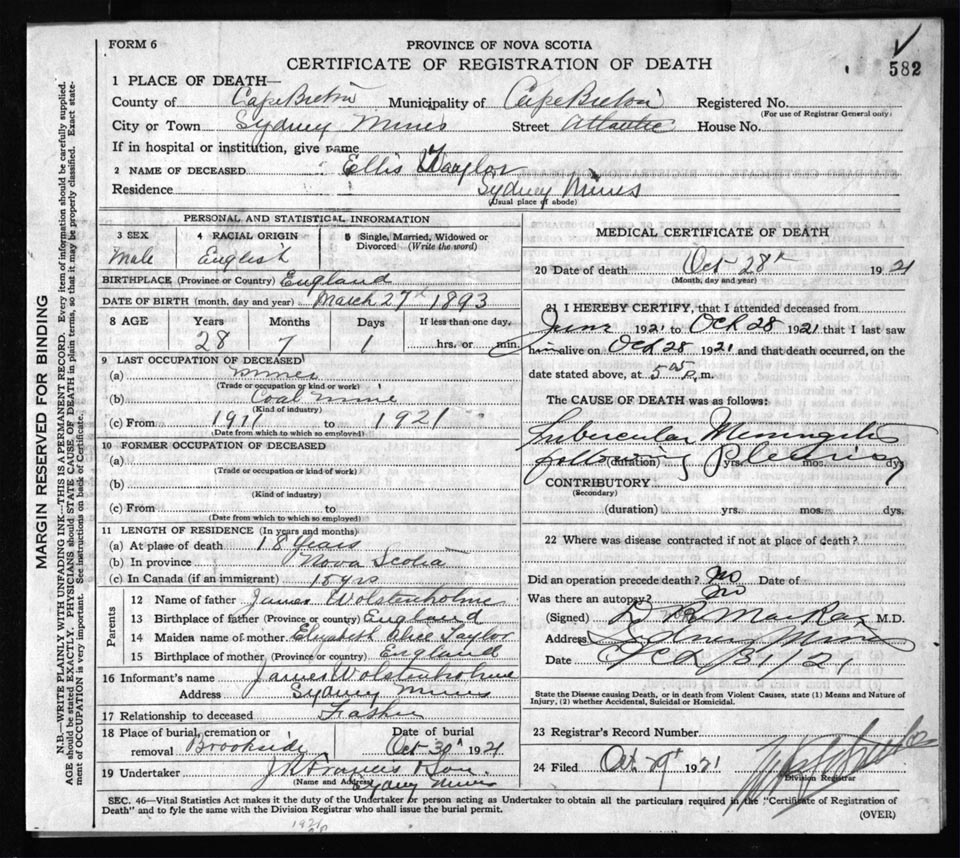 FORM 6
PROVINCE OF NOVA SCOTIA
CERTIFICATE OF REGISTRATION OF DEATH
582
1 PLACE OF DEATH—
County of Cape Breton Municipality of Cape Breton Registered No.
(For use of Registrar General only)
City or Town Sydney Mines Street Atlantic House No.
If in hospital or institution, give name
2 NAME OF DECEASED Ellis Taylor
Residence Sydney Mines
(Usual place of abode)
PERSONAL AND STATISTICAL INFORMATION
3 SEX Male
4 RACIAL ORIGIN English
5 Single, Married, Widowed or Divorced (Write the word)
BIRTHPLACE (Province or Country) England
DATE OF BIRTH (month, day and year) March 27th 1893
8 AGE Years 28 Months 7 Days 1 If less than one day, hrs. or min.
9 LAST OCCUPATION OF DECEASED
(a)
(Trade or occupation or kind or work)
(b) Coal Mine
(Kind of industry)
(c) From 1911 to 1921
(Date from which to which so employed)
10 FORMER OCCUPATION OF DECEASED
(a)
(Trade or occupation or kind of work)
(b)
(Kind of industry)
(c) From to
(Date from which to which so employed)
11 LENGTH OF RESIDENCE (In years and months)
(a) At place of death 18 Years
(b) In province Nova Scotia
(c) In Canada (if an immigrant) 18 yrs
Parents
12 Name of father James Wolstenholme
13 Birthplace of father (Province or country) England
14 Maiden name of mother Elizabeth Alice Taylor
15 Birthplace of mother (Province or country) England
16 Informant's name James Wolstenholme
Address Sydney Mines
17 Relationship to deceased Father
18 Place of burial, cremation or removal Brookside Date of burial Oct 30th 1921
19 Undertaker J R Francis & Son
(Name and Address) Sydney Mines
MEDICAL CERTIFICATE OF DEATH
20 Date of death Oct 28th 1921
(Month, day and year)
21 I HEREBY CERTIFY, that I attended deceased from
June 1921 to Oct 28 1921 that I last saw
him alive on Oct 28 1921 and that death occurred, on the
date stated above, at 5 P.m.
The CAUSE OF DEATH was as follows:
Tubercular Meningitis
following Pleurisy
(duration) yrs. mos. dys
CONTRIBUTORY
(Secondary)
(duration) yrs. mos. dys.
22 Where was disease contracted if not at place of death?
Did an operation precede death? No Date of
Was there an autopsy? No
(Signed) M.D.
Address Sydney Mines
Date Oct 31/21
State the Disease causing Death, or in death from Violent Causes, state (1) Means and Nature of
Injury, (2) whether Accidental, Suicidal or Homicidal.
23 Registrar's Record Number
24 Filed Oct 29th 1921
Division Registrar
SEC. 46—Vital Statistics Act makes it the duty of the Undertaker or person acting as Undertaker to obtain all the particulars required in the "Certificate of Registration of
Death" and to fyle the same with the Division Registrar who shall issue the burial permit.
(OVER)
MARGIN RESERVED FOR BINDING
N.B.—WRITE PLAINLY WITH UNFADING INK—THIS IS A PERMANENT RECORD. Every item of information should be carefully supplied.
AGE should be stated EXACTLY. PHYSICIANS should STATE CAUSE OF DEATH in plain terms, so that it may be properly classified. Exact state-
ment of OCCUPATION is very important. See instructions on back of Certificate.